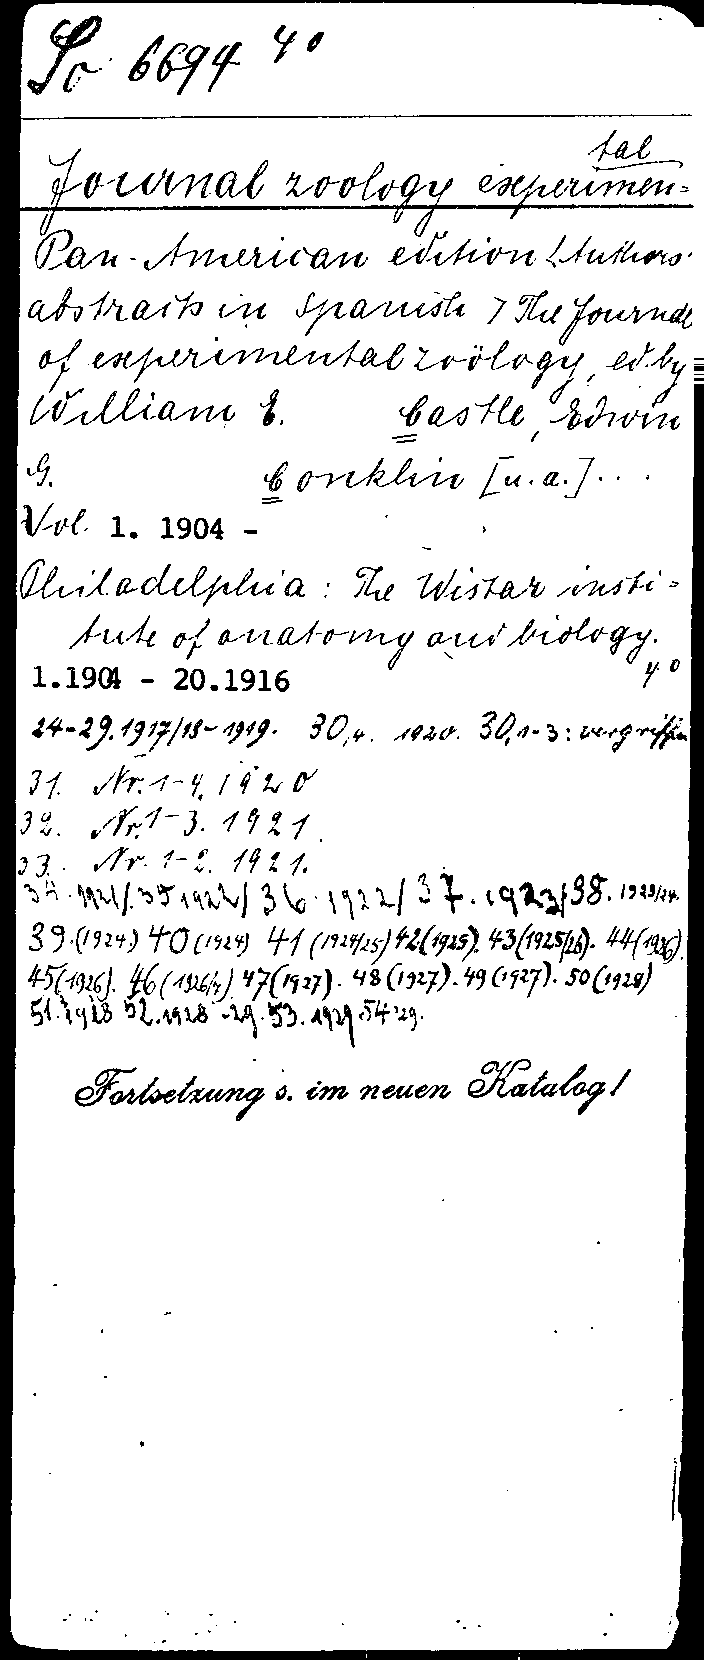 6694 4°
Journal zoology experimen=
tal
Pan-American edition < Authors'
abstracts in spanish > The Journal
of experimental zoölogy, ed. by
William E. Castle, Edwin
G. Conklin [u.a.]...
Vol. 1. 1904 -
Philadelphia: The Wistar insti=
tute of anatomy and biology.
4°
1.1904 - 20.1916
24-29.1917/18-1919. 30,4. 1920. 30,1-3: vergriffen
31. Nr. 1-4. 1920
32. Nr. 1-3. 1921.
33. Nr. 1-2. 1921.
34. 1921/. 35 1922/ 36. 1922/ 37. 1923/ 38. 1923/24.
39.(1924) 40 (1924) 41 (1924/25) 42(1925). 43(1925/26). 44(1926).
45(1926). 46 (1926/7) 47(1927). 48 (1927). 49 (1927). 50 (1928)
51. 1928 52. 1928-29. 53. 1929. 54 '29.
Fortsetzung s. im neuen Katalog!